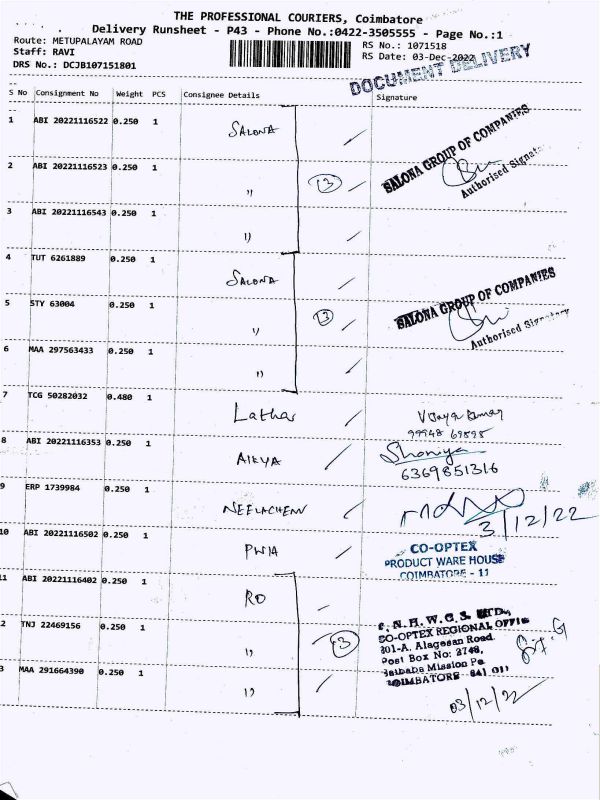 THE PROFESSIONAL COURIERS, Coimbatore
Delivery Runsheet - P43 - Phone No.:0422-3505555 - Page No.:1
Route: METUPALAYAM ROAD
RS No.: 1071518
Staff: RAVI
RS Date: 03-Dec-2022
DRS No.: DCJB107151801
DOCUMENT DELIVERY
S No Consignment No Weight PCS Consignee Details Signature
1 ABI 20221116522 0.250 1 SALONA
SALONA GROUP OF COMPANIES
Authorised Signat
2 ABI 20221116523 0.250 1 " 3
3 ABI 20221116543 0.250 1 "
4 TUT 6261889 0.250 1 SALONA
SALONA GROUP OF COMPANIES
Authorised Signatory
5 STY 63004 0.250 1 " 3
6 MAA 297563433 0.250 1 "
7 TCG 50282032 0.480 1 Lathar Vijaya Kumar
99948 69895
8 ABI 20221116353 0.250 1 AIKYA Shoniya
6369851316
9 ERP 1739984 0.250 1 NEELACHEN
3/12/22
10 ABI 20221116502 0.250 1
CO-OPTEX
PRODUCT WARE HOUSE
COIMBATORE - 11
11 ABI 20221116402 0.250 1 RO
T.N.H.W.C.S. LTD.,
CO-OPTEX REGIONAL OFFIC
201-A, Alagesan Road
Post Box No: 2748,
Saibaba Mission Po
COIMBATORE 641 011
2 TNJ 22469156 0.250 1 " 3
3 MAA 291664390 0.250 1 "
03/12/22